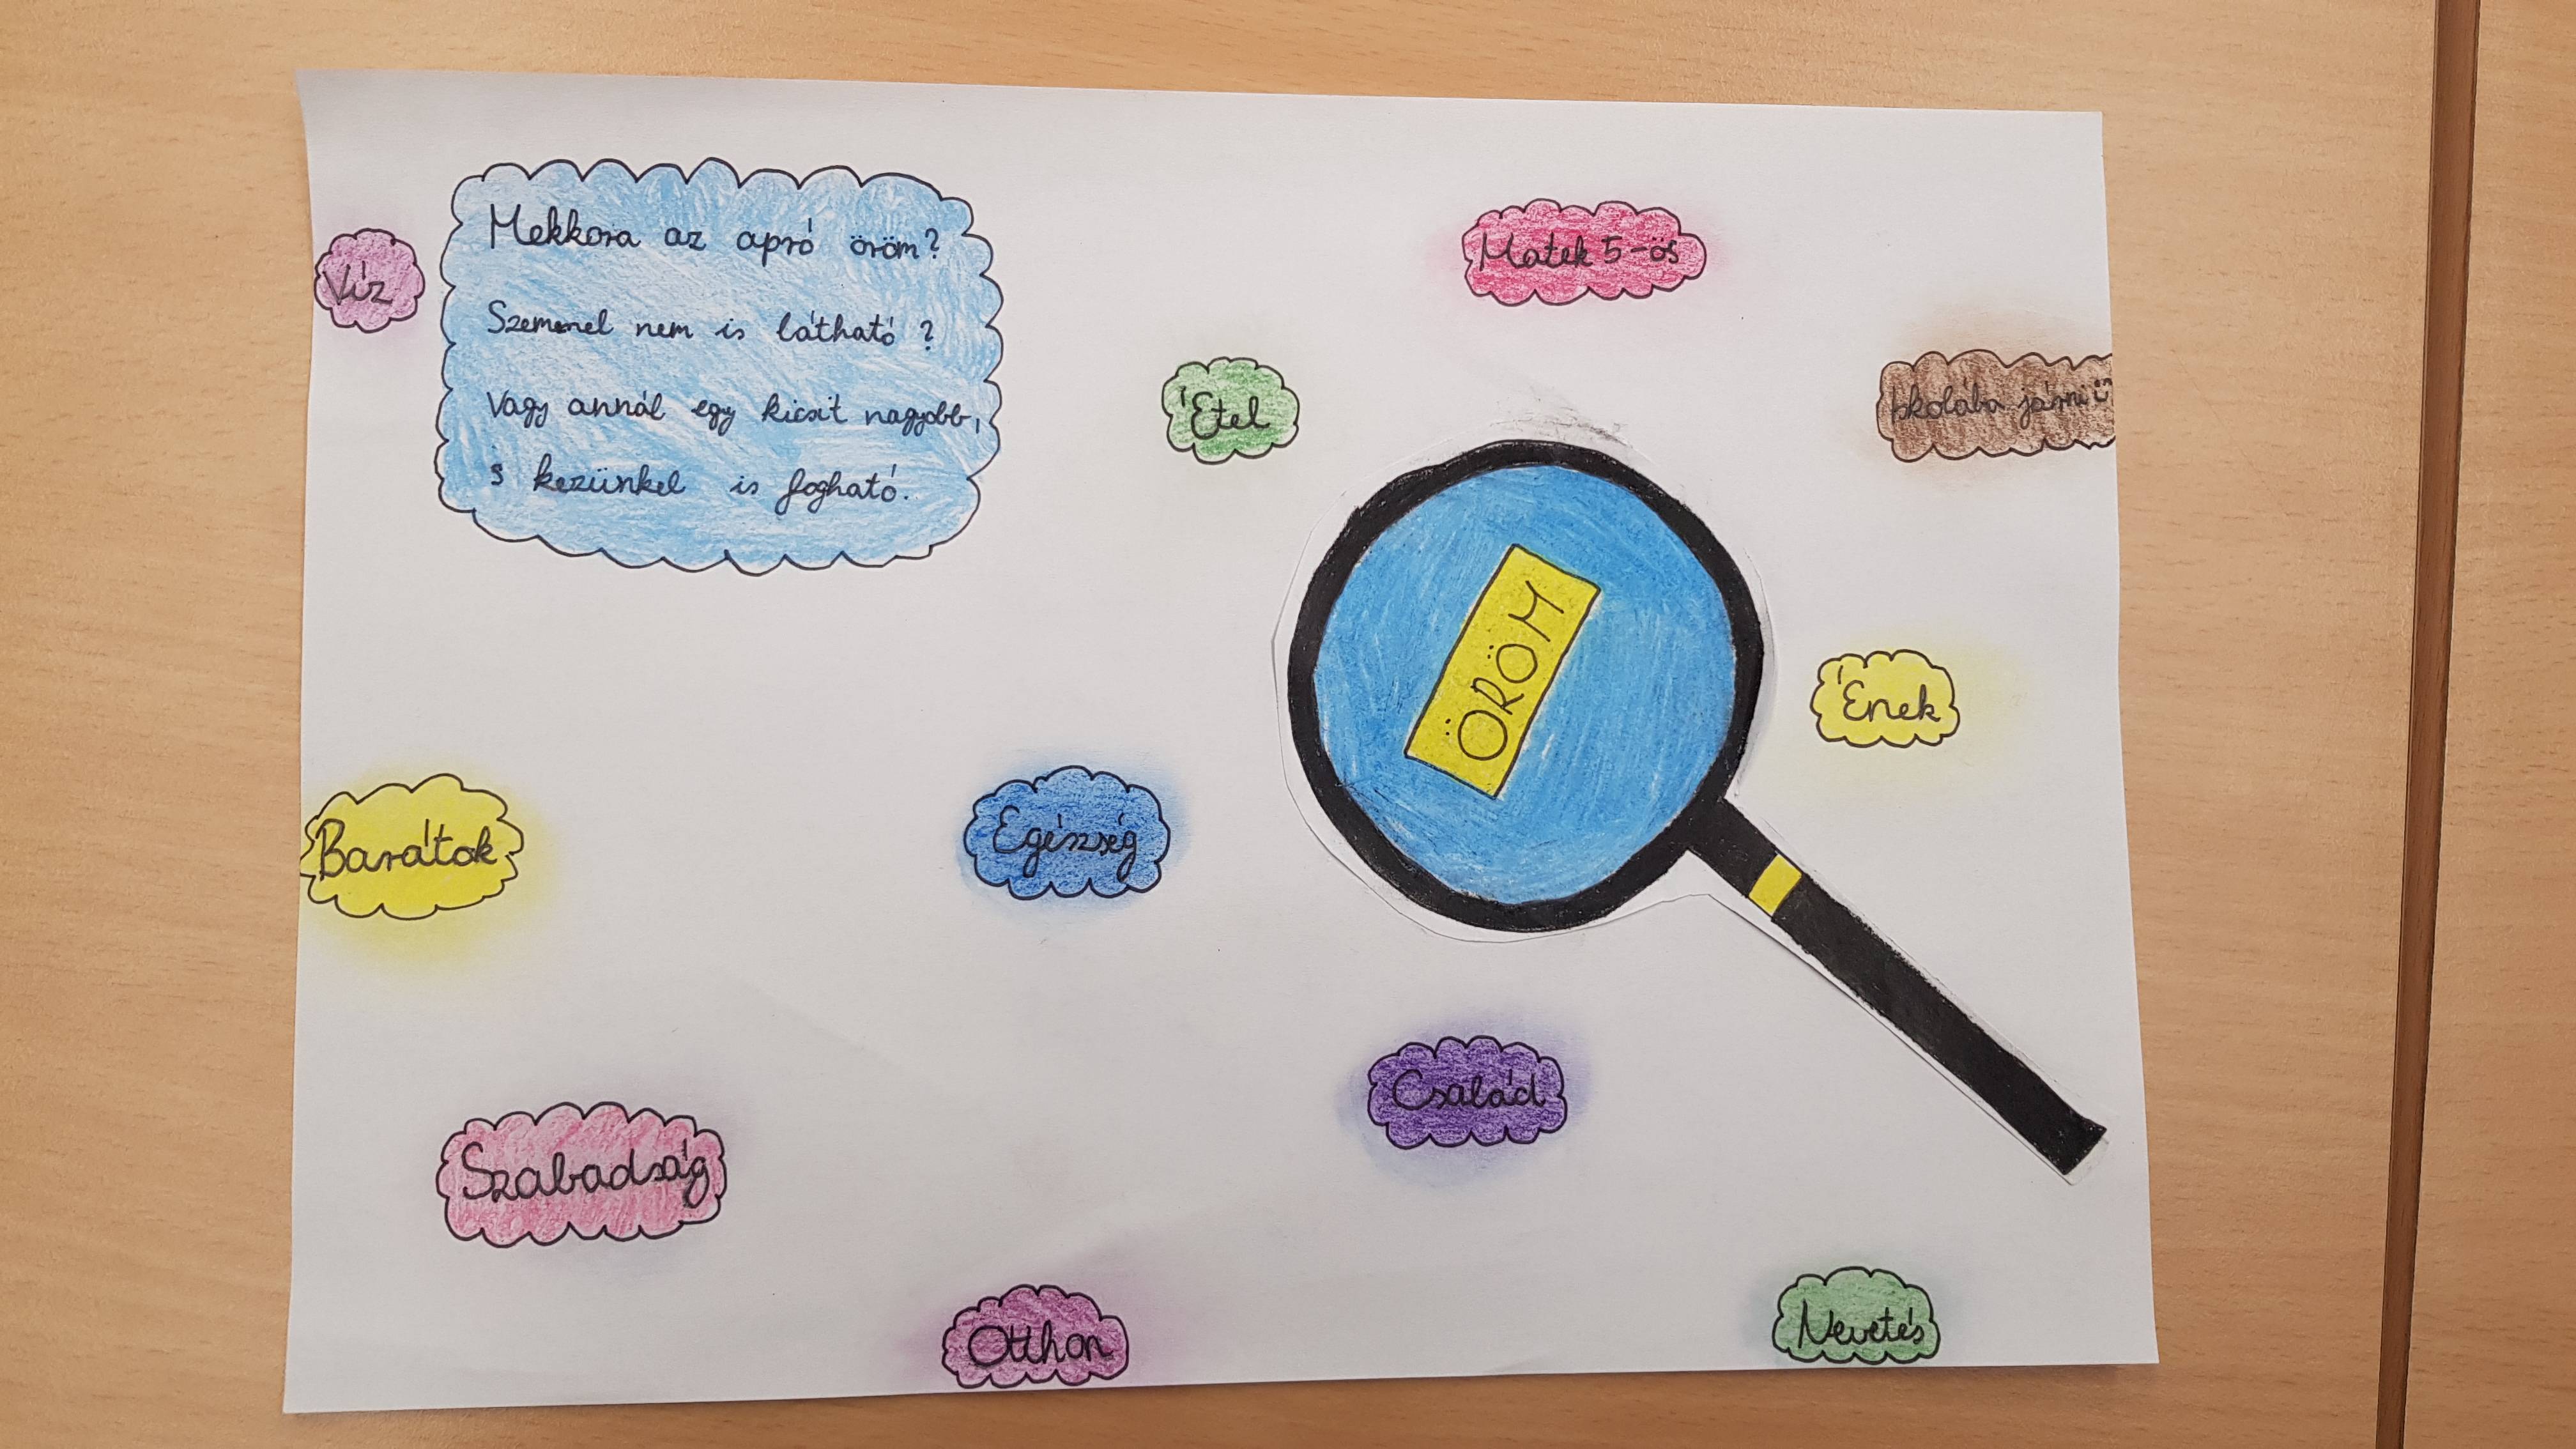 Víz
Mekkora az apró öröm?
Szemmel nem is látható?
Vagy annál egy kicsit nagyobb,
s kezünkel is fogható.
Matek 5-ös
Étel
Iskolába járni
ÖRÖM
Ének
Barátok
Egészség
Család
Szabadság
Otthon
Nevetés